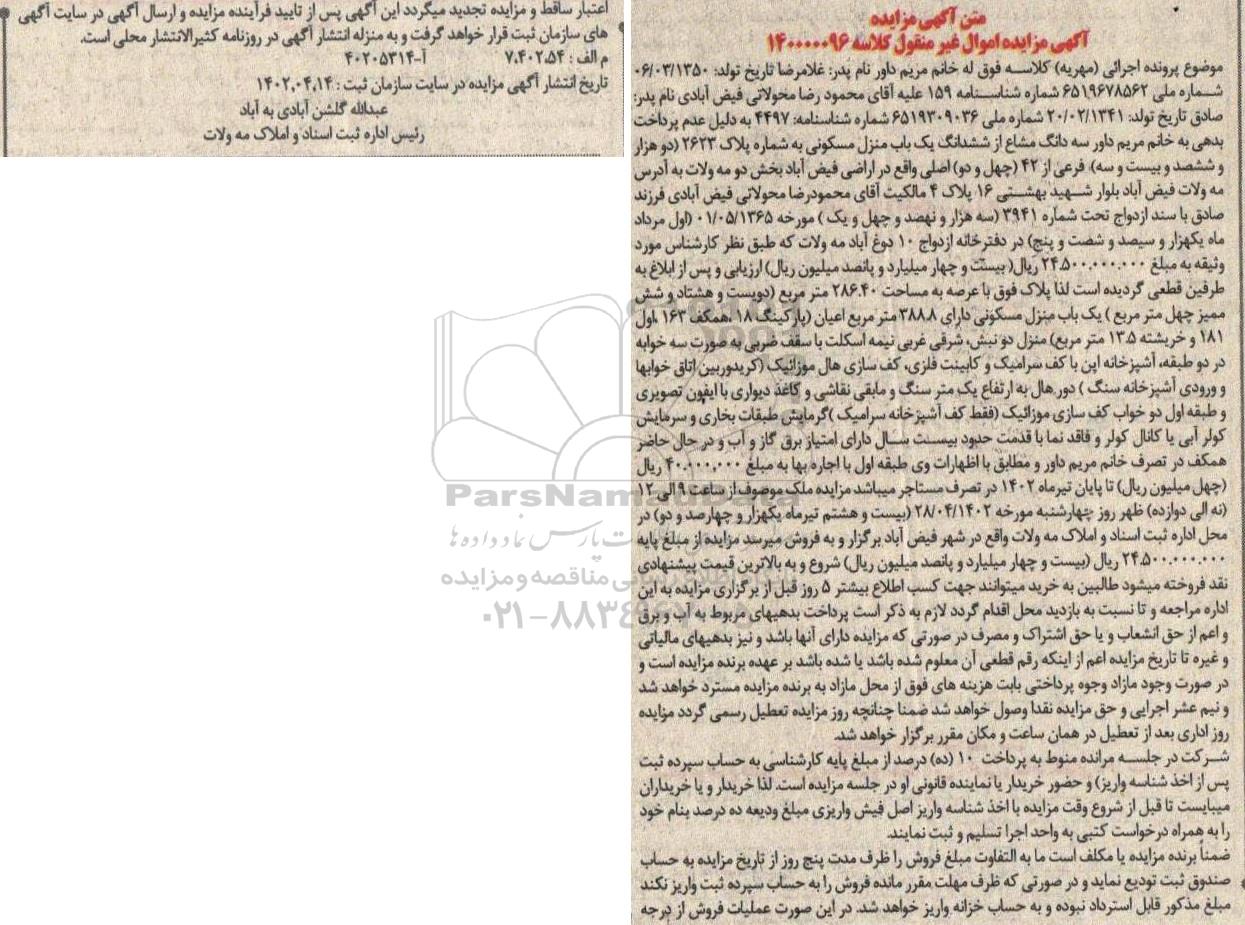 متن آگهی مزایده
آگهی مزایده اموال غیر منقول کلاسه ۱۴۰۰۰۰۰۹۶
موضوع پرونده اجرائی (مهریه) کلاسه فوق له خانم مریم داور نام پدر: غلامرضا تاریخ تولد: ۰۶/۰۳/۱۳۵۰
شماره ملی ۶۵۱۹۶۷۸۵۶۲ شماره شناسنامه ۱۵۹ علیه آقای محمود رضا محولاتی فیض آبادی نام پدر:
صادق تاریخ تولد: ۲۰/۰۲/۱۳۴۱ شماره ملی ۶۵۱۹۳۰۹۰۳۶ شماره شناسنامه: ۴۴۹۷ به دلیل عدم پرداخت
بدهی به خانم مریم داور سه دانگ مشاع از ششدانگ یک باب منزل مسکونی به شماره پلاک ۲۶۲۳ (دو هزار
و ششصد و بیست و سه) فرعی از ۴۲ (چهل و دو) اصلی واقع در اراضی فیض آباد بخش دو مه ولات به آدرس
مه ولات فیض آباد بلوار شهید بهشتی ۱۶ پلاک ۴ مالکیت آقای محمودرضا محولاتی فیض آبادی فرزند
صادق با سند ازدواج تحت شماره ۳۹۴۱ (سه هزار و نهصد و چهل و یک ) مورخه ۰۱/۰۵/۱۳۶۵ (اول مرداد
ماه یکهزار و سیصد و شصت و پنج) در دفترخانه ازدواج ۱۰ دوغ آباد مه ولات که طبق نظر کارشناس مورد
وثیقه به مبلغ ۲۴.۵۰۰.۰۰۰.۰۰۰ ریال( بیست و چهار میلیارد و پانصد میلیون ریال) ارزیابی و پس از ابلاغ به
طرفین قطعی گردیده است لذا پلاک فوق با عرصه به مساحت ۲۸۶.۴۰ متر مربع (دویست و هشتاد و شش
ممیز چهل متر مربع ) یک باب منزل مسکونی دارای ۳۸۸.۸ متر مربع اعیان (پارکینگ ۱۸ ،همکف ۱۶۳ ،اول
۱۸۱ و خرپشته ۱۳.۵ متر مربع) منزل دو نبش، شرقی غربی نیمه اسکلت با سقف ضربی به صورت سه خوابه
در دو طبقه، آشپزخانه اپن با کف سرامیک و کابینت فلزی، کف سازی هال موزائیک (کریدوربین اتاق خوابها
و ورودی آشپزخانه سنگ ) دور هال به ارتفاع یک متر سنگ و مابقی نقاشی و کاغذ دیواری با ایفون تصویری
و طبقه اول دو خواب کف سازی موزائیک (فقط کف آشپزخانه سرامیک )گرمایش طبقات بخاری و سرمایش
کولر آبی یا کانال کولر و فاقد نما با قدمت حدود بیست سال دارای امتیاز برق گاز و آب و در حال حاضر
همکف در تصرف خانم مریم داور و مطابق با اظهارات وی طبقه اول با اجاره بها به مبلغ ۴۰.۰۰۰.۰۰۰ ریال
(چهل میلیون ریال) تا پایان تیرماه ۱۴۰۲ در تصرف مستاجر میباشد مزایده ملک موصوف از ساعت ۹ الی ۱۲
(نه الی دوازده) ظهر روز چهارشنبه مورخه ۲۸/۰۴/۱۴۰۲ (بیست و هشتم تیرماه یکهزار و چهارصد و دو) در
محل اداره ثبت اسناد و املاک مه ولات واقع در شهر فیض آباد برگزار و به فروش میرسد مزایده از مبلغ پایه
۲۴.۵۰۰.۰۰۰.۰۰۰ ریال (بیست و چهار میلیارد و پانصد میلیون ریال) شروع و به بالاترین قیمت پیشنهادی
نقد فروخته میشود طالبین به خرید میتوانند جهت کسب اطلاع بیشتر ۵ روز قبل از برگزاری مزایده به این
اداره مراجعه و تا نسبت به بازدید محل اقدام گردد لازم به ذکر است پرداخت بدهیهای مربوط به آب و برق
و اعم از حق انشعاب و یا حق اشتراک و مصرف در صورتی که مزایده دارای آنها باشد و نیز بدهیهای مالیاتی
و غیره تا تاریخ مزایده اعم از اینکه رقم قطعی آن معلوم شده باشد یا شده باشد بر عهده برنده مزایده است و
در صورت وجود مازاد وجوه پرداختی بابت هزینه های فوق از محل مازاد به برنده مزایده مسترد خواهد شد
و نیم عشر اجرایی و حق مزایده نقدا وصول خواهد شد ضمنا چنانچه روز مزایده تعطیل رسمی گردد مزایده
روز اداری بعد از تعطیل در همان ساعت و مکان مقرر برگزار خواهد شد.
شرکت در جلسه مرانده منوط به پرداخت ۱۰ (ده) درصد از مبلغ پایه کارشناسی به حساب سپرده ثبت
پس از اخذ شناسه واریز) و حضور خریدار یا نماینده قانونی او در جلسه مزایده است. لذا خریدار و یا خریداران
میبایست تا قبل از شروع وقت مزایده با اخذ شناسه واریز اصل فیش واریزی مبلغ ودیعه ده درصد بنام خود
را به همراه درخواست کتبی به واحد اجرا تسلیم و ثبت نمایند.
ضمناً برنده مزایده یا مکلف است ما به التفاوت مبلغ فروش را ظرف مدت پنج روز از تاریخ مزایده به حساب
صندوق ثبت تودیع نماید و در صورتی که ظرف مهلت مقرر مانده فروش را به حساب سپرده ثبت واریز نکند
مبلغ مذکور قابل استرداد نبوده و به حساب خزانه واریز خواهد شد. در این صورت عملیات فروش از درجه
اعتبار ساقط و مزایده تجدید میگردد این آگهی پس از تایید فرآینده مزایده و ارسال آگهی در سایت آگهی
های سازمان ثبت قرار خواهد گرفت و به منزله انتشار آگهی در روزنامه کثیرالانتشار محلی است.
م الف : ۷،۴۰۲،۵۴ آ-۴۰۲۰۵۳۱۴
تاریخ انتشار آگهی مزایده در سایت سازمان ثبت : ۱۴۰۲،۰۴،۱۴
عبدالله گلشن آبادی به آباد
رئیس اداره ثبت اسناد و املاک مه ولات
ParsNamadData
پارس نماد داده ها
۰۲۱-۸۸۳۴۹۶۷۰-۵